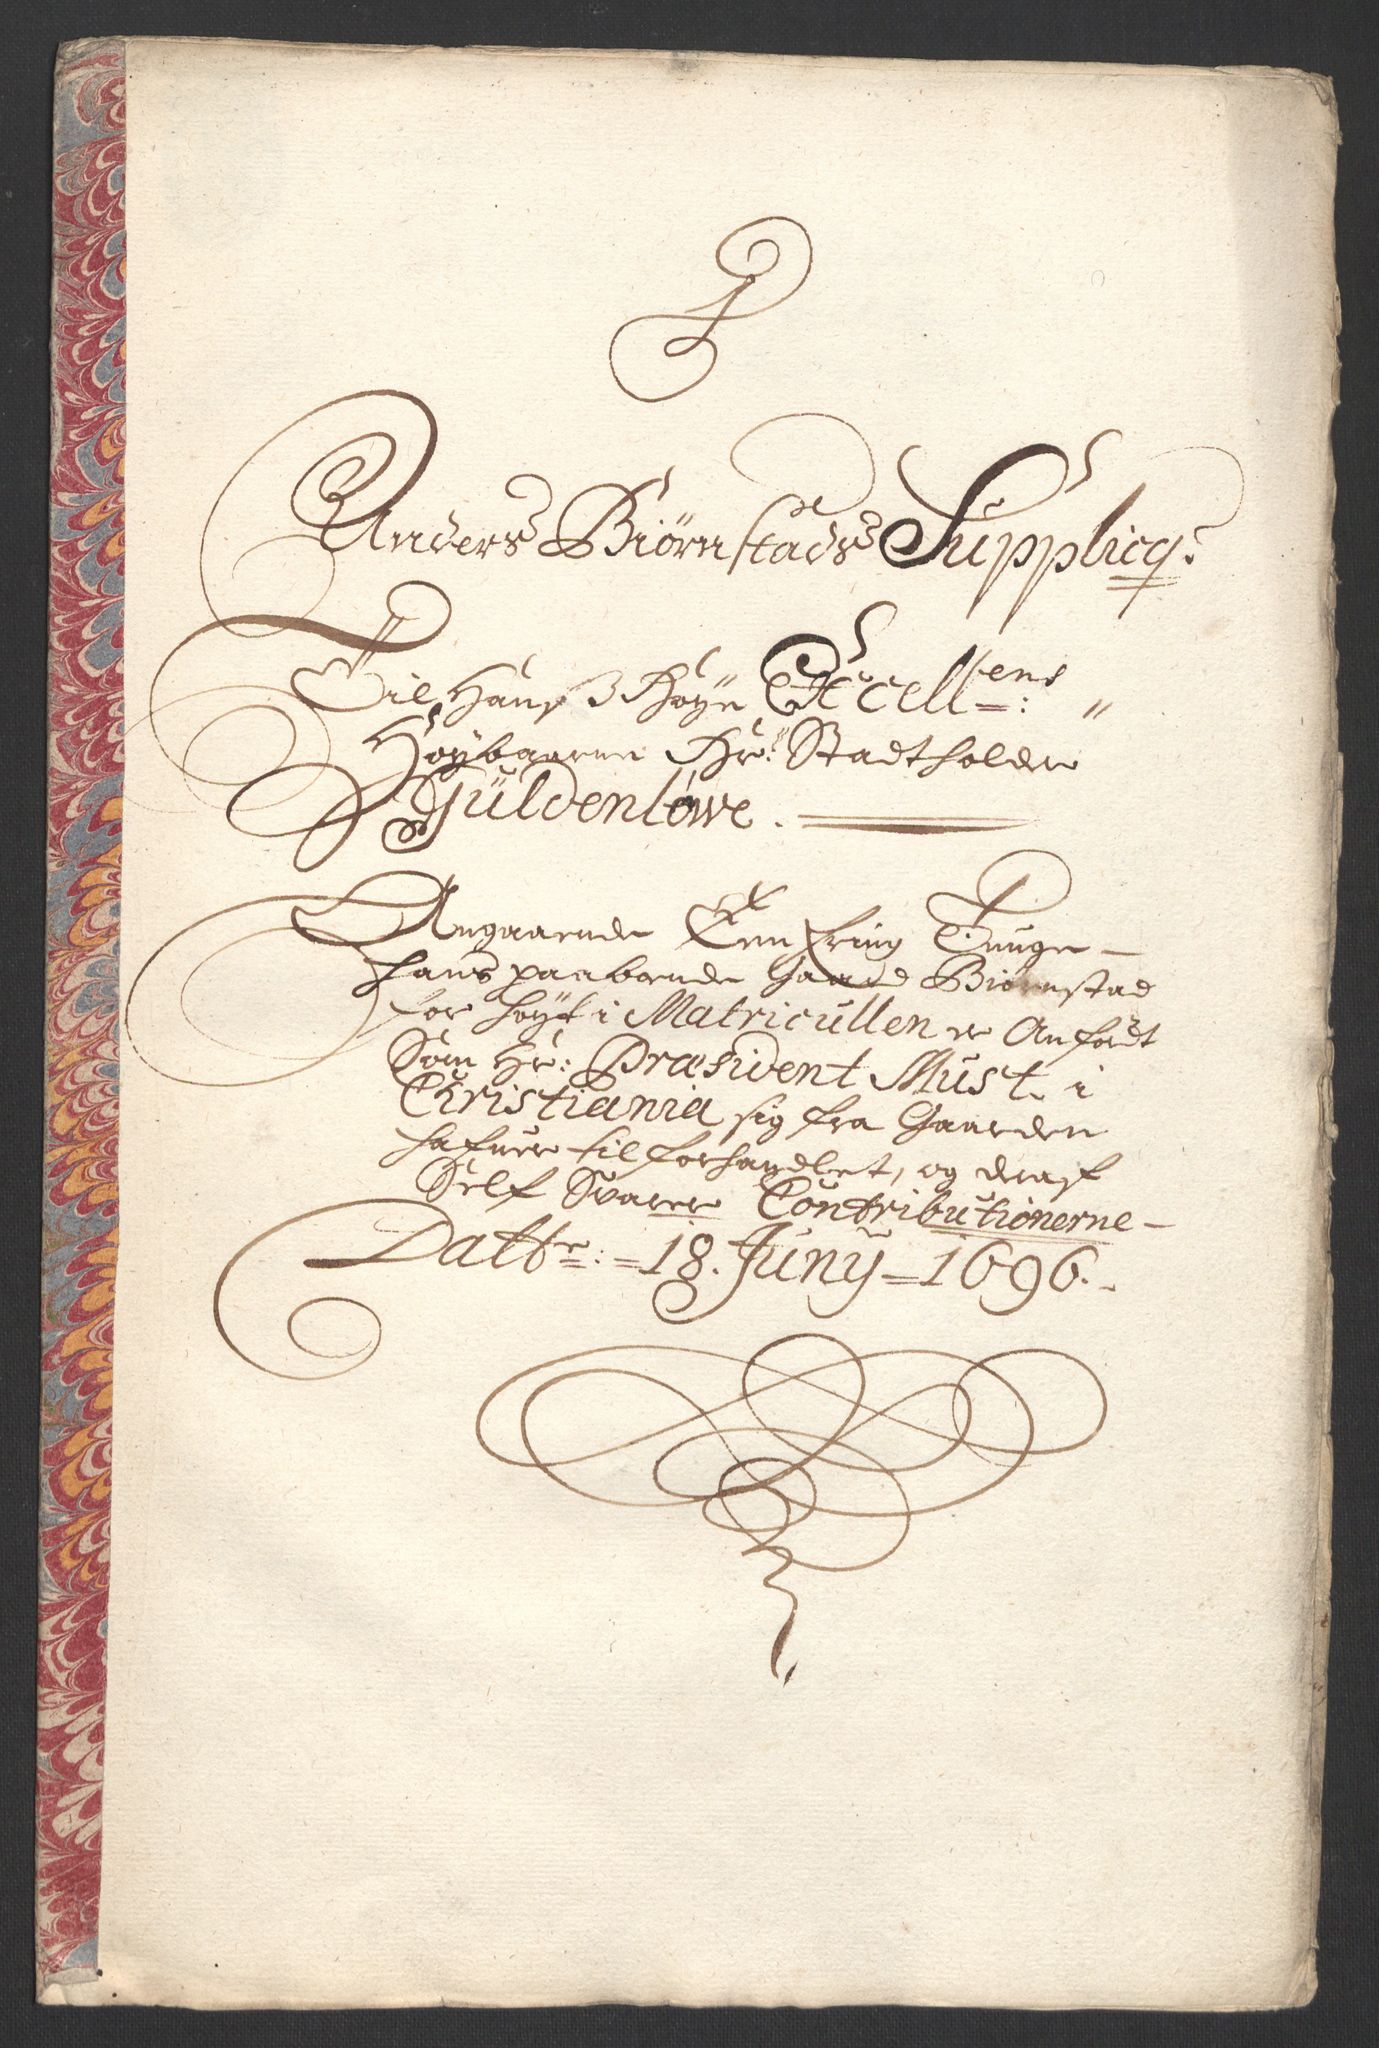 Anders Biørnstads Supplicq:
Til Hans Høye Excell:ens
Høybaarne Hr: Stadtholder
Güldenlöwe.
Angaarende Een Eng
hans paaboende Gaard Biørnstad
for høyt i Matricullen er Anført
Som Hr: Præsident Must i
Christiania sig fra Gaarden
hafuer tilforhandlet, og deraf
Self Svarer Contributionerne
Datt: 18. Juny 1696.